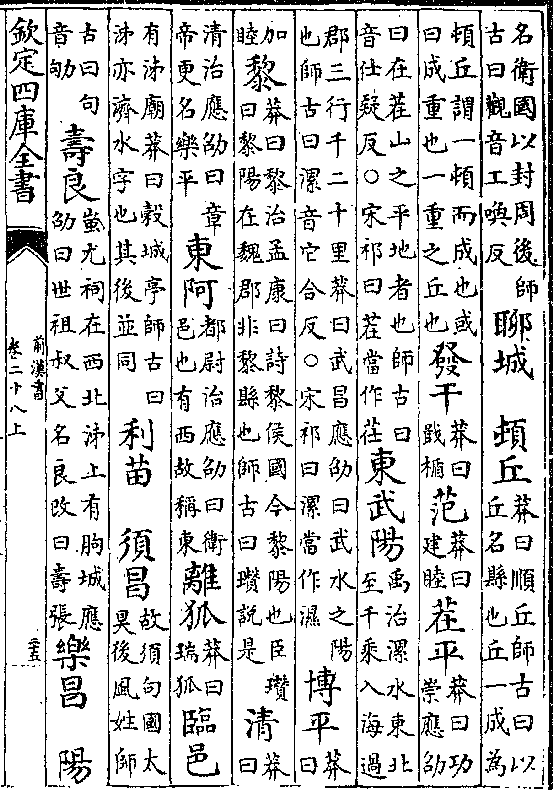 名衛國以封周後師古曰觀音工喚反聊城 頓丘莽曰順丘師古曰以丘名縣也丘一成為
頓丘謂一頓而成也或曰成重也一重之丘也發干莽曰戢楯范莽曰建睦茬平莽曰功崇應劭
曰在茬山之平地者也師古曰音仕疑反○宋祁曰茬當作茌東武陽禹治漯水東北至千乘入海過
郡三行千二十里莽曰武昌應劭曰武水之陽也師古曰漯音它合反○宋祁曰漯當作濕博平莽曰
加睦黎莽曰黎治孟康曰詩黎侯國今黎陽也臣瓚曰黎陽在魏郡非黎縣也師古曰瓚說是清莽曰
清治應劭曰章帝更名樂平東阿都尉治應劭曰衛邑也有西故稱東離狐莽曰瑞狐臨邑
有泲廟莽曰穀城亭師古曰泲亦濟水字也其後並同利苗 須昌故須句國太昊後風姓師
古曰句音劬壽良蚩尤祠在西北泲上有朐城應劭曰世祖叔父名良改曰壽張樂昌 陽
欽定四庫全書
前漢書
卷二十八上
二十五